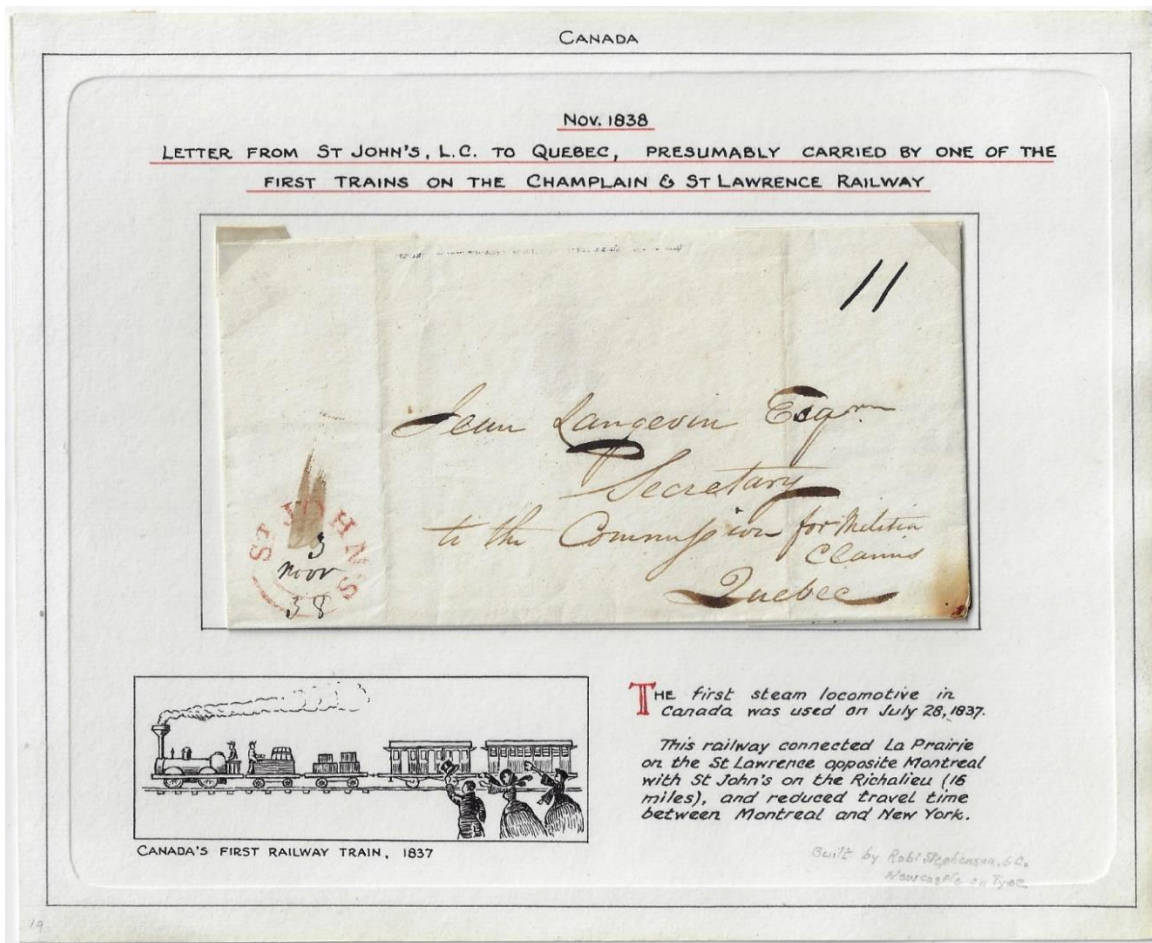 CANADA
NOV. 1838
LETTER FROM ST JOHN'S, L.C. TO QUEBEC, PRESUMABLY CARRIED BY ONE OF THE
FIRST TRAINS ON THE CHAMPLAIN & ST LAWRENCE RAILWAY
11
Jean Langevin Esqr.
Secretary
to the Commission for Militia
Claims
Quebec
ST JOHNS
3
Novr
38
THE first steam locomotive in
Canada was used on July 28, 1837.
This railway connected La Prairie
on the St Lawrence opposite Montreal
with St John's on the Richalieu (16
miles), and reduced travel time
between Montreal and New York.
CANADA'S FIRST RAILWAY TRAIN, 1837
Built by Robt Stephenson, & C.
Newcastle on Tyne
19